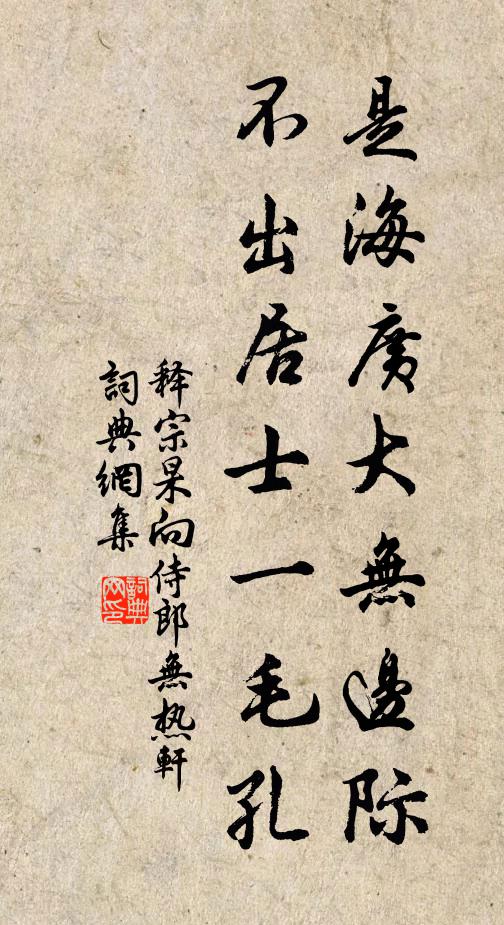 是海廣大無邊际
不出居士一毛孔
释宗杲向侍郎無热軒
詞典網集
詞典网印